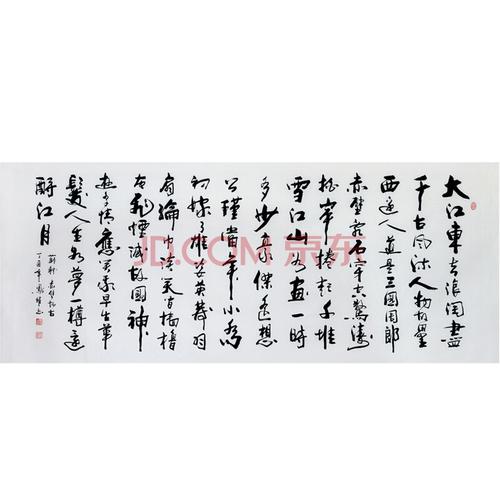 大江東去浪淘盡
千古風流人物故壘
西邊人道是三國周郎
赤壁亂石穿空驚濤
拍岸捲起千堆
雪江山如畫一時
多少豪傑遙想
公瑾當年小喬
初嫁了雄姿英發羽
扇綸巾談笑間檣櫓
灰飛煙滅故國神
遊多情應笑我早生華
髮人生如夢一樽還
酹江月
蘇軾赤壁懷古
JD.COM 京东